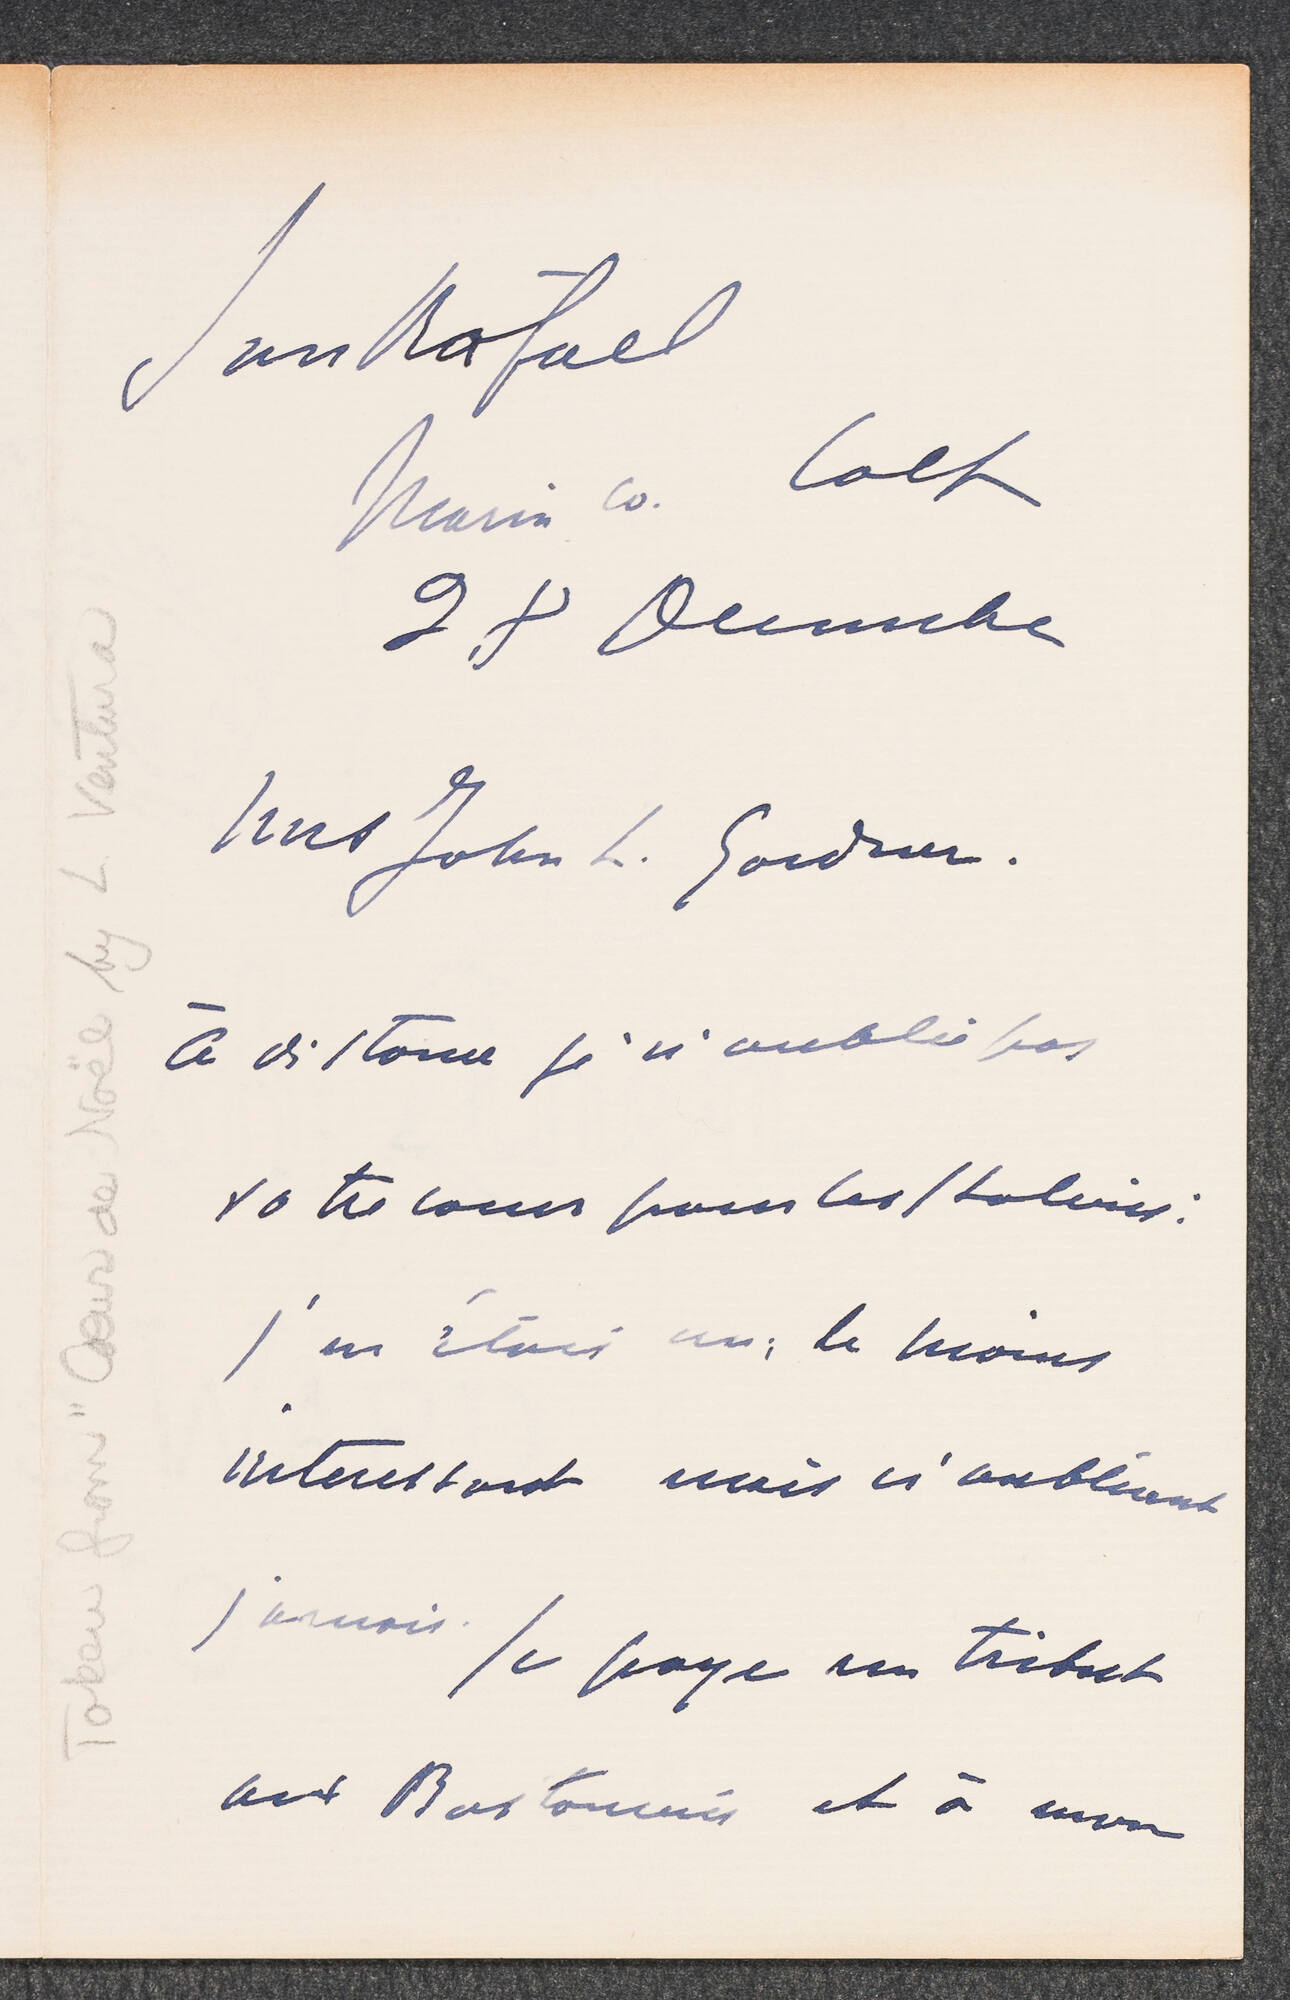 San Rafael
Marin Co. Calf
28 Decembre
Mrs John L. Gardner.
À distance je n'oublie pas
votre coeur pour les Italiens:
j'en étais un; le moins
interessant mais n'oubliant
jamais. Je paye un tribut
aux Bostoniens et à mon
Taken from "Coeur de Noël by L. Ventura